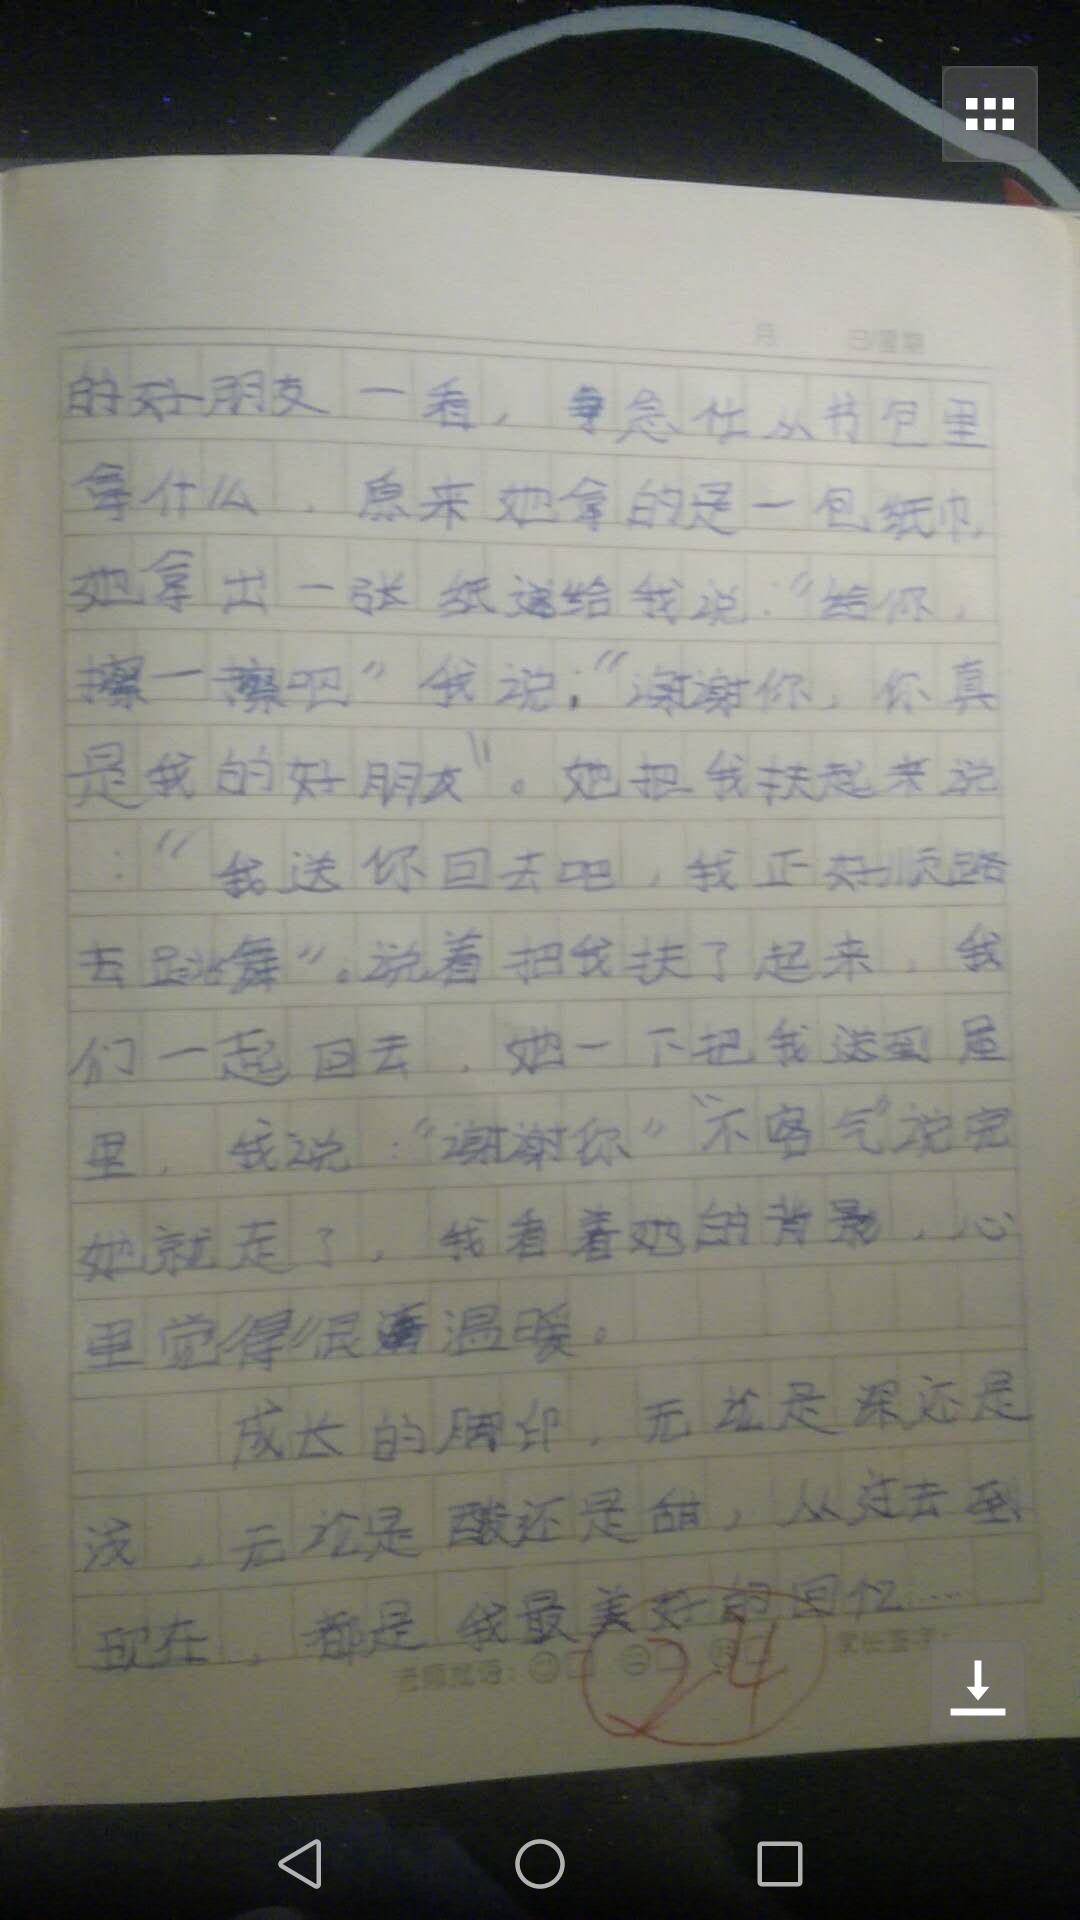 月 日 星期
的好朋友一看，急忙从书包里
拿什么，原来她拿的是一包纸巾，
她拿出一张纸递给我说：“给你，
擦一擦吧”我说：“谢谢你，你真
是我的好朋友”。她把我扶起来说
：“我送你回去吧，我正好顺路
去跳舞”。说着把我扶了起来，我
们一起回去，她一下把我送到屋
里，我说：“谢谢你”“不客气”说完
她就走了，我看着她的背影，心
里觉得很温暖。
成长的脚印，无论是深还是
浅，无论是酸还是甜，从过去到
现在，都是我最美好的回忆…
24